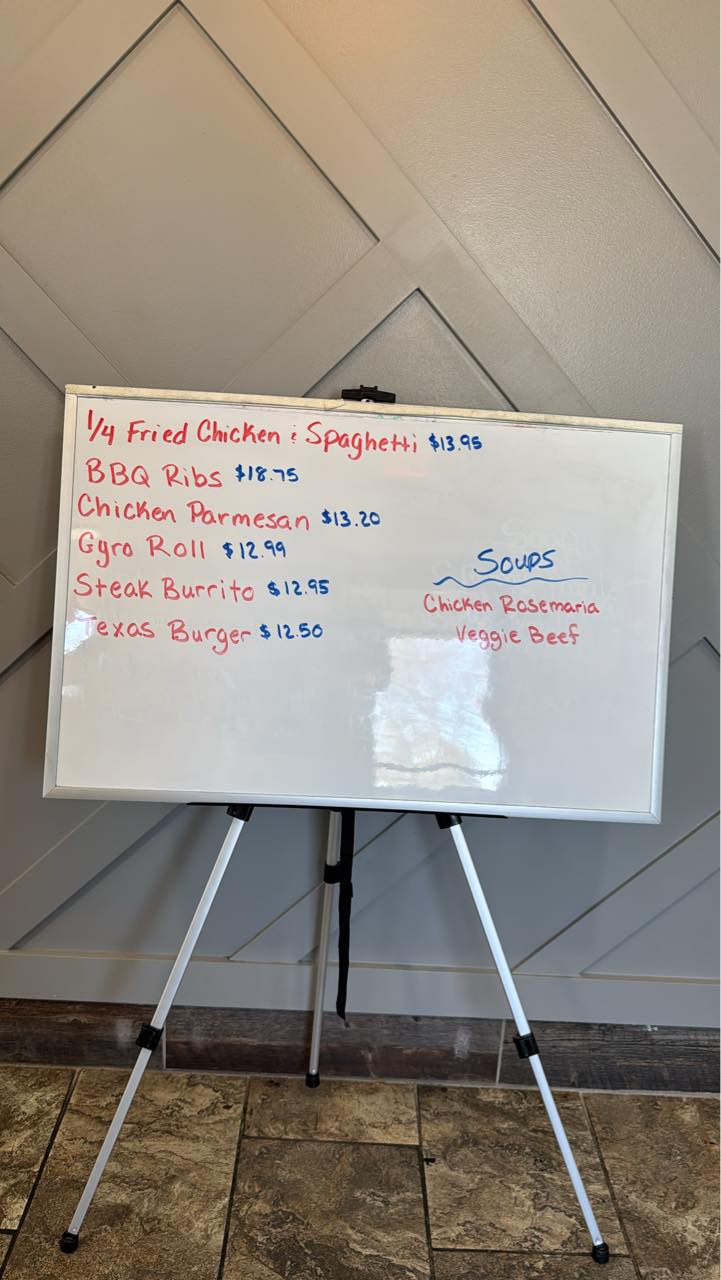 1/4 Fried Chicken & Spaghetti $13.95
BBQ Ribs $18.75
Chicken Parmesan $13.20
Gyro Roll $12.99
Steak Burrito $12.95
Texas Burger $12.50
Soups
Chicken Rosemaria
Veggie Beef